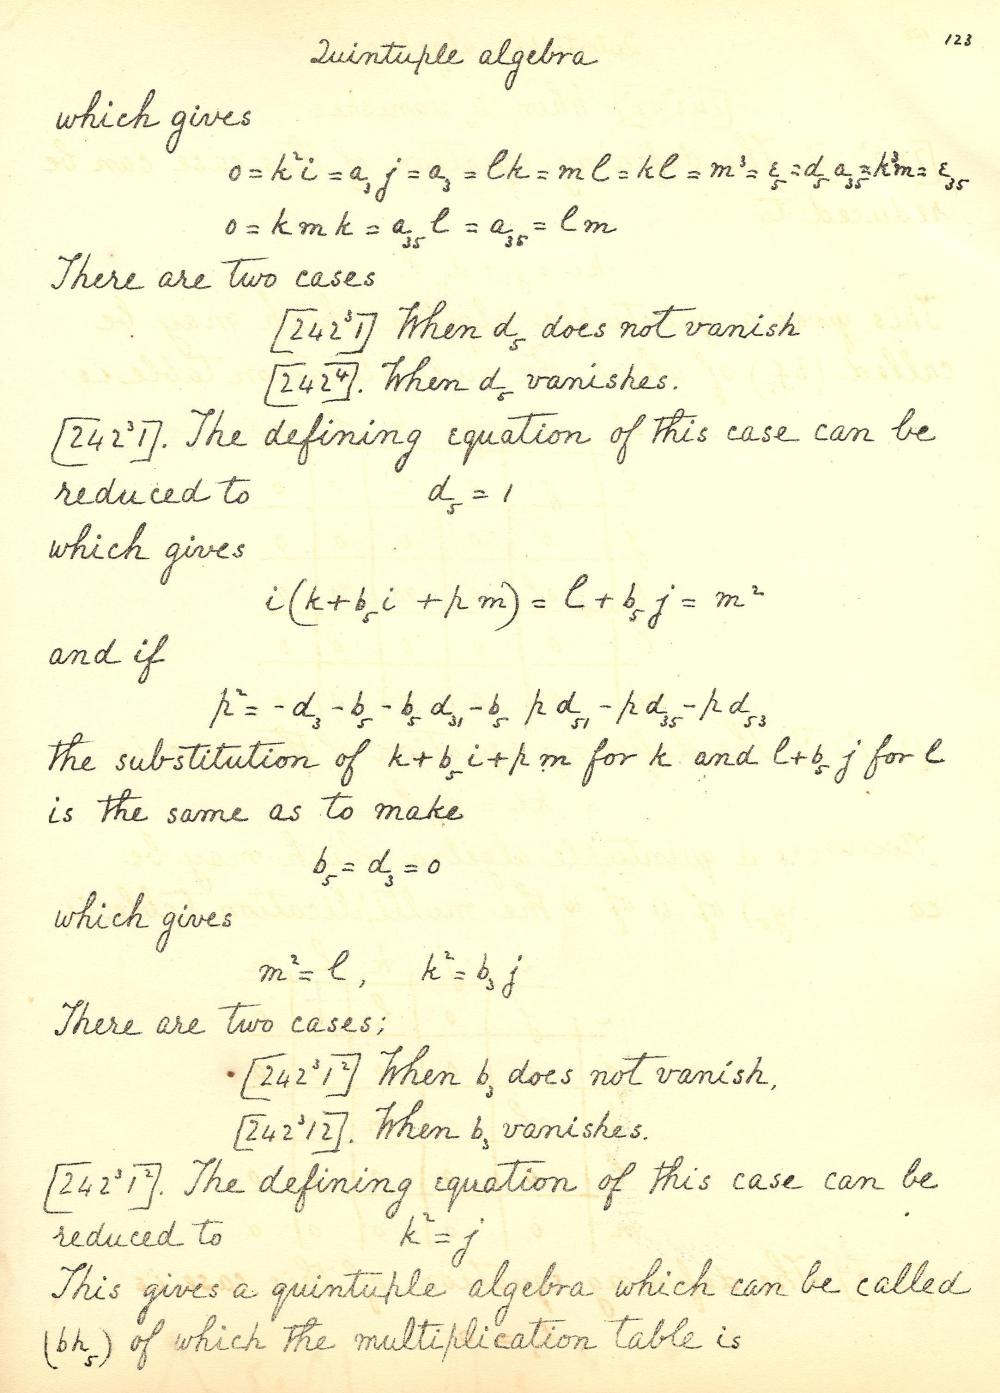 123
Quintuple algebra
which gives
0 = k²i = a₃j = a₃ = lk = ml = kl = m³ = ε₅ = d₅a₃₅ = k³m = ε₃₅
0 = kmk = a₃₅l = a₃₅ = lm
There are two cases
[242³1] When d₅ does not vanish
[242⁴]. When d₅ vanishes.
[242³1]. The defining equation of this case can be
reduced to d₅ = 1
which gives
i(k+b₅i +pm) = l+b₅j = m²
and if
p² = -d₃ -b₅ -b₅d₃₁ -b₅ p d₅₁ -p d₃₅ -p d₅₃
the substitution of k+b₅i+pm for k and l+b₅j for l
is the same as to make
b₅ = d₃ = 0
which gives
m² = l, k² = b₃j
There are two cases;
[242³1²] When b₃ does not vanish,
[242³12]. When b₃ vanishes.
[242³1²]. The defining equation of this case can be
reduced to k² = j
This gives a quintuple algebra which can be called
(bh₅) of which the multiplication table is